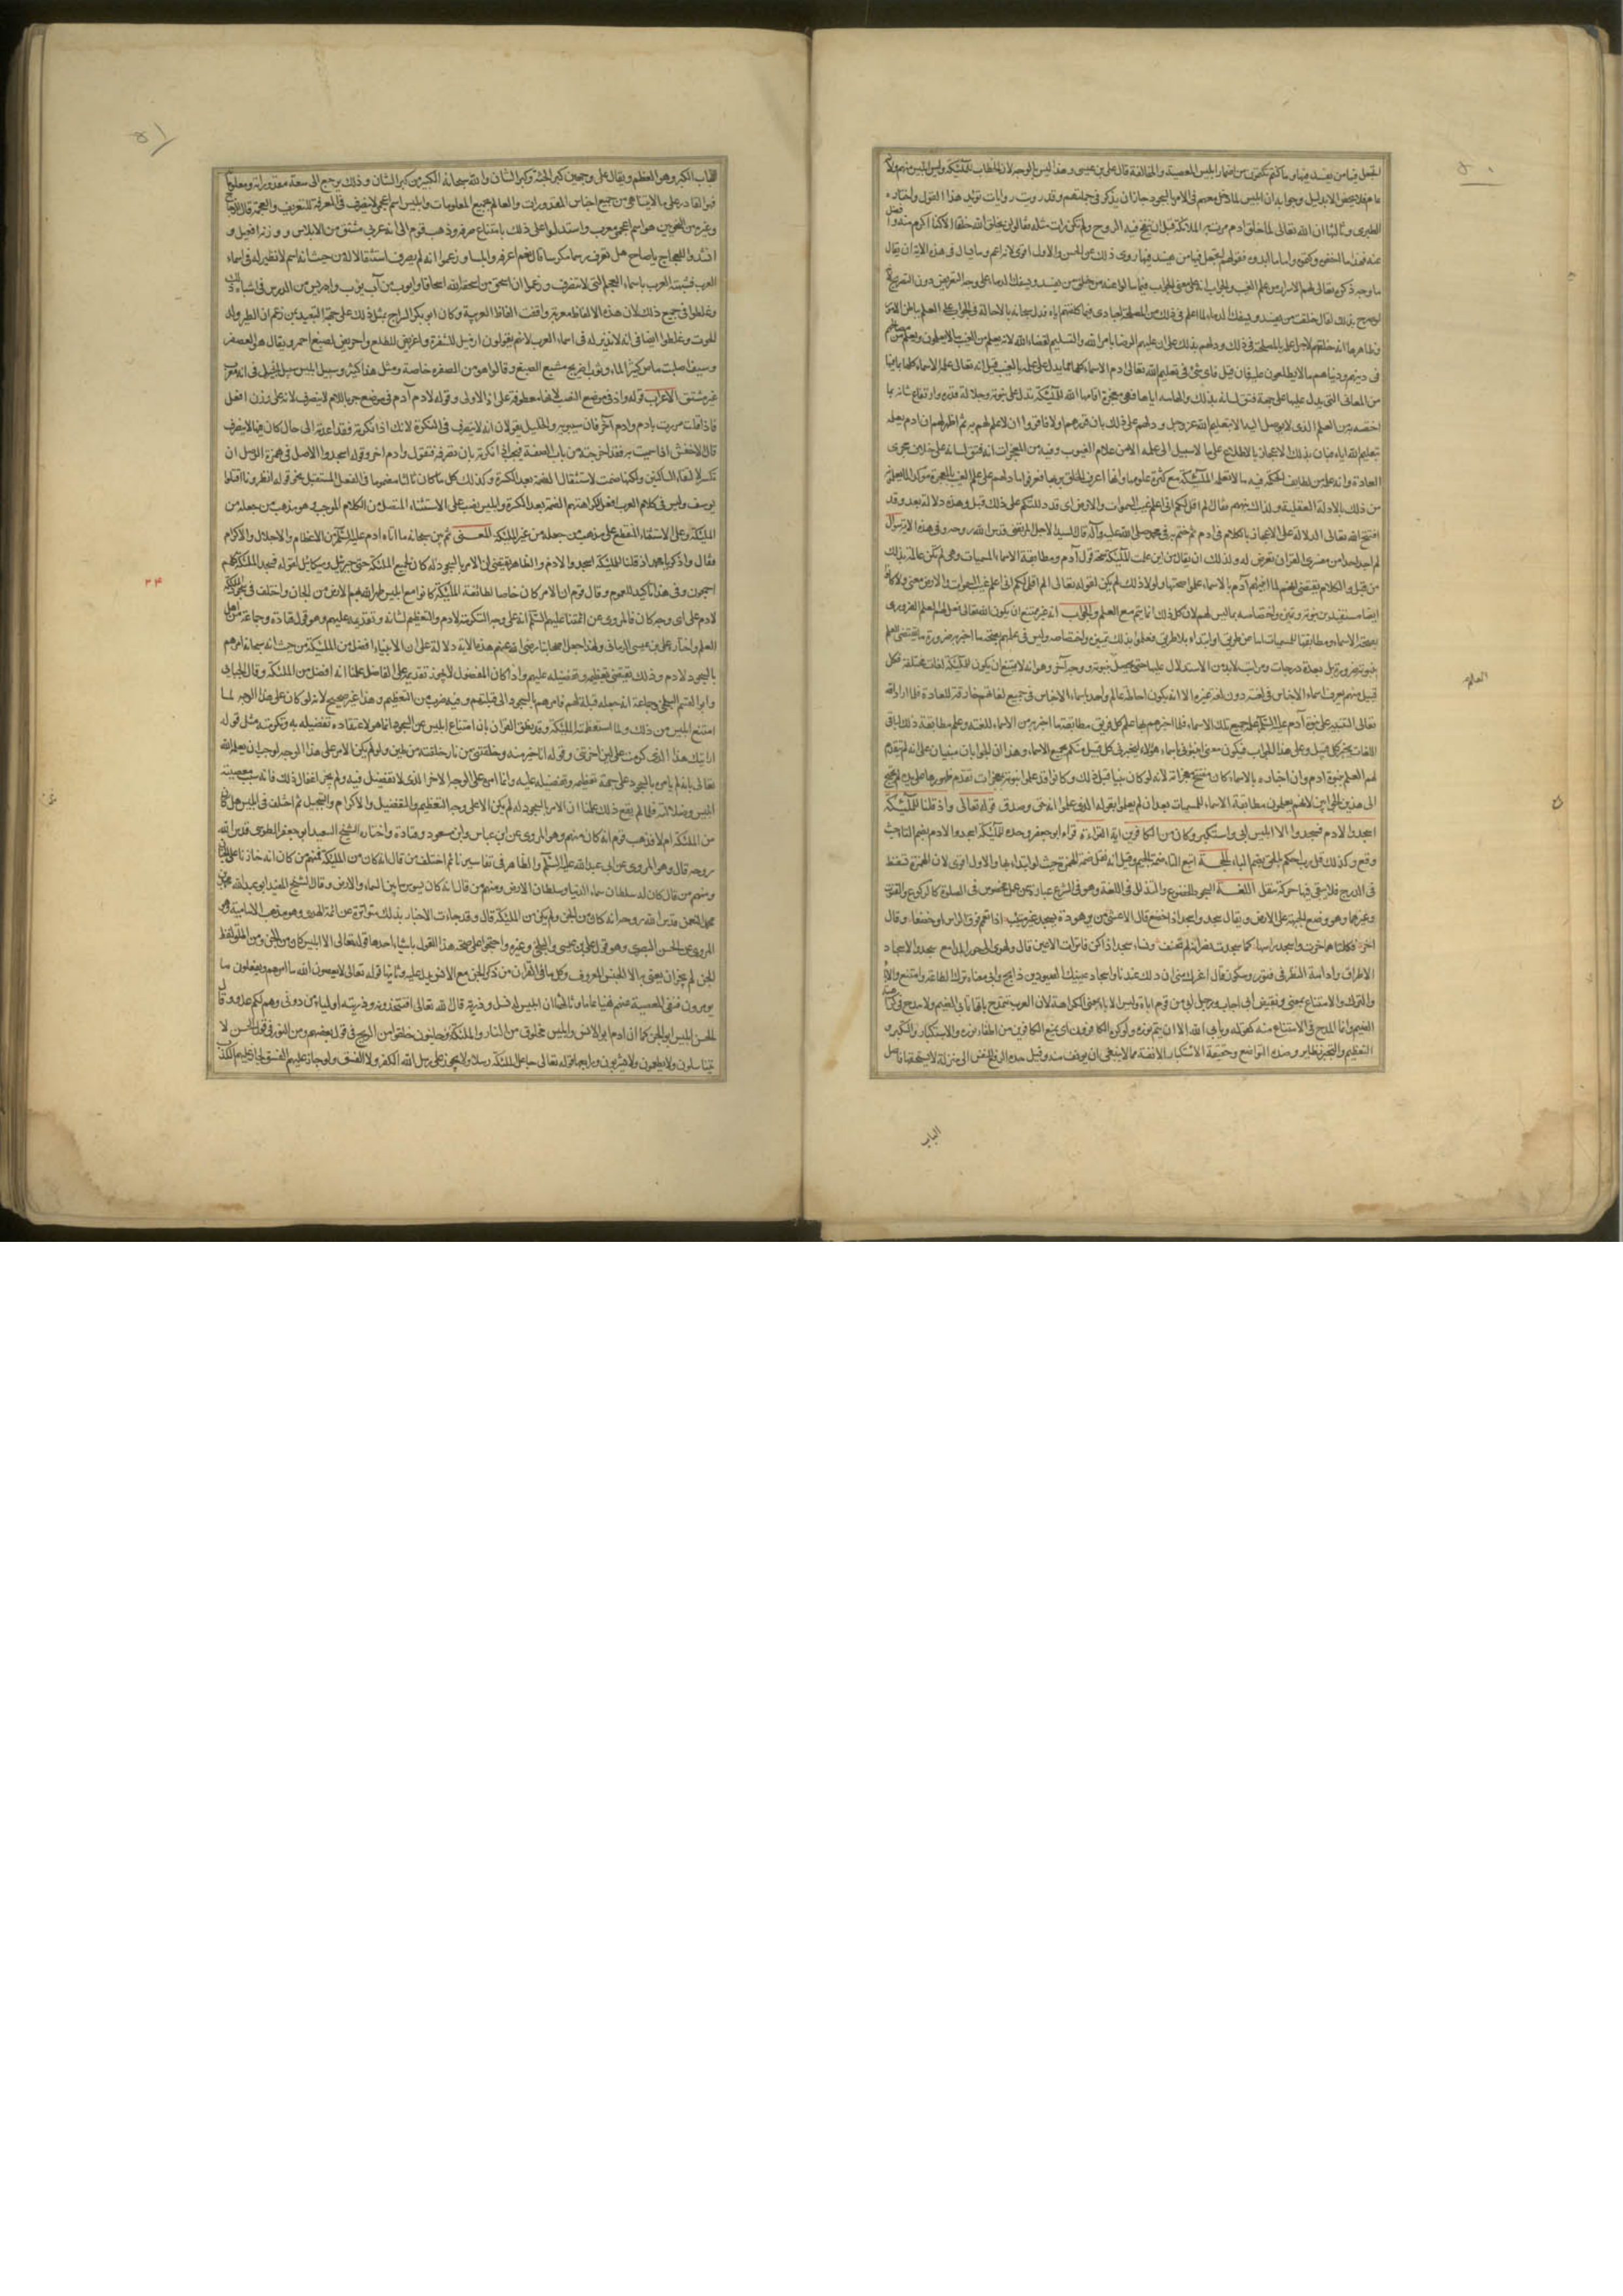 ۵۰
اتجعل فيها من يفسد فيها وما كنتم تكتمون من اضمار ابليس المعصية والمخالفة قال علی بن عيسى وهذا ليس بالوجه لان الخطاب للملئكة وليس ابليس منهم ولانه
عام فلا يخص الا بدليل وجوابه ان ابليس لما دخل معهم فى الامر بالسجود جاز ان يذكر فى جملتهم وقد رويت روايات تؤيد هذا القول واختاره
الطبرى وثالثها ان الله تعالى لما خلق ادم مرت به الملائكة قبل ان ينفخ فيه الروح ولم تكن رات مثله فقالوا لن يخلق الله خلقا الا كنا اكرم منه وافضل
عنده فهذا ما اخفوه وكتموه واما ما ابدوه فقولهم اتجعل فيها من يفسد فيها روى ذلك عن الحسن والاول اقوى لانه اعم ومما يسال فى هذه الاية ان يقال
ما وجه ذكره تعالى لهم الاسرار من علم الغيب والجواب
فى دينهم ودنياهم ما لا يطلعون عليه فان قيل فاى شئ فى تعليم الله تعالى ادم الاسماء كلها مما يدل على علمه بالغيب قيل انه تعالى علمه الاسماء كلها بما فيها
من المعانى التى يدل عليها على جهة فتق لسانه بذلك والهامه اياها فهى معجزة اقامها الله للملئكة تدل على نبوته وجلالة قدره وارتفاع شانه بما
اختصه به من العلم الذى لا يوصل اليه الا بتعليم الله عز وجل ودلهم على ذلك بان قررهم اولا فاقروا ان لا علم لهم به ثم اظهر لهم ان ادم يعلمه
بتعليم الله اياه فبان بذلك الاعجاز بالاطلاع على ما لا سبيل الى علمه الا من علام الغيوب وفيه من المعجزات انه فتق لسانه على خلاف مجرى
العادة وانه علمه من لطايف الحكمة فيه ما لا تعلمه الملئكة مع كثرة علومها وانها اعرف الخلق بربها فعرفوا ما دلهم على علم الغيب بالمعجزة مؤكدا لما يعلمونه
من ذلك بالادلة العقلية ولذلك نبههم فقال الم اقل لكم انى اعلم غيب السموات والارض اى قد دللتكم على ذلك قبل وهذه دلالة بعد وقد
افتتح الله تعالى الدلالة على الاعجاز بالكلام فى ادم ثم ختم به فى محمد صلى الله عليه وآله قال السيد الاجل المرتضى قدس الله روحه وفى هذه الاية سؤال
لم اجد احدا من مفسرى القران تعرض له وذلك ان يقال من اين علمت الملئكة صحة قول آدم ومطابقة الاسماء المسميات وهى لم تكن عالمة بذلك
من قبل والكلام يقتضى انهم لما انبئهم آدم بالاسماء علموا صحتها ولولا ذلك لم يكن لقوله تعالى الم اقل لكم انى اعلم غيب السموات والارض معنى ولا كانوا
ايضا مستفيدين نبوته وتميزه واختصاصه بما ليس لهم لان كل ذلك انما يتم مع العلم والجواب انه غير ممتنع ان يكون الله تعالى فعل لهم العلم الضرورى
بصحة الاسماء ومطابقتها للمسميات اما عن طريق او ابتداء بلا طريق فعلموا بذلك تميزه واختصاصه وليس فى علمهم بصحة ما اخبر به ضرورة ما يقتضى العلم
بنبوته ضرورة بل بعده درجات ومراتب لابد من الاستدلال عليها حتى يحصل بنبوته ووجه آخر وهو انه لا يمتنع ان يكون للملئكة لغات مختلفة فكل
قبيل منهم يعرف اسماء الاجناس فى لغته دون لغة غيره الا انه يكون احاطة عالم واحد باسماء الاجناس فى جميع لغاتهم خارقة للعادة فلما اراد الله
تعالى التنبيه على نبوة آدم عليه السلام علمه جميع تلك الاسماء فلما اخبرهم بها علم كل فريق مطابقة ما اخبر به من الاسماء للغته وعلم مطابقة ذلك لباقى
اللغات بخبر كل قبيل وعلى هذا الجواب فيكون معنى انبئونى باسماء هؤلاء ليخبرنى كل قبيل منكم بجميع الاسماء وهذان الجوابان مبنيان على انه لم يتقدم
لهم العلم بنبوة ادم وان اخباره بالاسماء كان مفتتح معجزاته لانه لو كان نبيا قبل ذلك وكانوا قد علموا نبوته بمعجزات تقدم ظهورها على يده لم يحتج
الى هذين الجوابين لانهم يعلمون مطابقة الاسماء للمسميات بعد ان لم يعلموا بقوله الذى علموا انه حق وصدق قوله تعالى واذ قلنا للملئكة
اسجدوا لادم فسجدوا الا ابليس ابى واستكبر وكان من الكافرين اية القراءة قراء ابو جعفر وحده للملئكة اسجدوا لادم بضم التاء حيث
وقع وكذلك قل رب احكم بالحق بضم الباء الحجة اتبع التاء ضمة الجيم وقيل انه نقل ضمة الهمزة حيث لو ابتداء بها والاول اقوى لان الهمزة تسقط
فى الدرج فلا يبقى فيها حركة تنقل اللغة السجود الخضوع والتذلل فى اللغة وهو فى الشرع عبارة عن عمل مخصوص فى الصلوة كالركوع والقنوت
وغيرهما وهو وضع الجبهة على الارض ويقال سجد واسجد اذا خضع قال الاعشى من يلق هوذة يسجد غير متئب اذا تعمم فوق الراس او خضعا وقال
اخر فكلتاهما خرت واسجد راسها كما سجدت نصرانة لم تحنف ونساء سجد اذا كن فاترات الاعين قال ولهوى الى حور المدامع سجد والاسجاد
الاطراق وادامة النظر فى فتور وسكون قال اغرك منى ان دلك عندنا واسجاد عينيك الصيودين رابح وابى معناه ترك الطاعة وامتنع والاباء
والترك والامتناع بمعنى ونقيض ابى اجاب ورجل ابى من قوم اباة وليس الاباء بمعنى الكراهة لان العرب تتمدح بانها تابى الضيم ولا مدح فى كراهية
الضيم وانما المدح فى الامتناع منه كقوله ويابى الله الا ان يتم نوره ولو كره الكافرون اى يمنع الكافرين من اطفاء نوره والاستكبار والتكبر و
التعظم والتجبر نظاير وضده التواضع وحقيقة الاستكبار الانفة مما لا ينبغى ان يوفف منه وقيل حده الرفع للنفس الى منزلة لا تستحقها فاصل
الباب
۵۱
الباب الكبر وهو العظم ويقال على وجهين كبر الجثة وكبر الشان والله سبحانه الكبير من كبر الشان وذلك يرجع الى سعة مقدوراته ومعلوماته
فهو القادر على ما لا يتناهى من جميع اجناس المقدورات والعالم بجميع المعلومات وابليس اسم اعجمى لا ينصرف فى المعرفة للتعريف والعجمة قال الزجاج
وغيره من النحويين هو اسم اعجمى معرب واستدلوا على ذلك بامتناع صرفه وذهب قوم الى انه عربى مشتق من الابلاس ووزنه افعيل و
انشدوا للعجاج يا صاح هل تعرف رسما مكرسا قال نعم اعرفه وابلسا وزعموا انه لم يصرف استثقالا له من حيث انه اسم لا نظير له فى اسماء
العرب فشبهته العرب باسماء العجم التى لا تنصرف وزعموا ان اسحق من اسحقه الله اسحاقا وايوب من آب يؤب وادريس من الدرس فى اشباه ذلك
وغلطوا فى جميع ذلك لان هذه الالفاظ معربة وافقت الفاظ العربية وكان ابو بكر السراج يمثل ذلك على جهة التبعيد بمن زعم ان الطير ولد
الحوت وغلطوا ايضا فى انه لا نظير له فى اسماء العرب لانهم يقولون ازميل للشفرة واغريض للطلع واحريض لصبغ احمر ويقال هو العصفر
وسيف اصليت ماض كثير الماء وثوب اضريج مشبع الصبغ وقالوا هو من الصفرة خاصة ومثل هذا كثير وسبيل ابليس سبيل انجيل فى انه معرب
غير مشتق الاعراب قوله واذ فى موضع النصب لانها معطوفة على اذ الاولى وقوله لادم آدم فى موضع جر باللام لا ينصرف لانه على وزن افعل
فاذا قلت مررت بادم وادم آخر فان سيبويه والخليل يقولان انه لا ينصرف فى النكرة لانك اذا نكرته فقد اعدته الى حال كان فيها لا ينصرف
قال الاخفش اذا سميت به فقد اخرجته من باب الصفة فيجب اذا نكرته ان تصرفه فتقول وادم اخر وقوله اسجدوا الاصل فى همزة الوصل ان
تكسر لالتقاء الساكنين ولكنها ضمت لاستثقال الضمة بعد الكسرة وكذلك كل ما كان ثالثه مضموما فى الفعل المستقبل نحو قوله انظرونا اقتلوا
يوسف وليس فى كلام العرب فعل لكراهتهم الضمة بعد الكسرة وابليس نصب على الاستثناء المتصل من الكلام الموجب وهو مذهب من جعله من
الملئكة وعلى الاستثناء المنقطع على مذهب من جعله من غير الملئكة المعنى ثم بين سبحانه ما آتاه ادم عليه السلم من الاعظام والاجلال والاكرام
فقال واذكر يا محمد اذ قلنا للملئكة اسجدوا لادم والظاهر يقتضى ان الامر بالسجود له كان لجميع الملئكة حتى جبرئيل وميكائيل لقوله فسجد الملئكة كلهم
اجمعون وفى هذا تاكيد للعموم وقال قوم ان الامر كان خاصا لطائفة الملئكة كانوا مع ابليس طهر الله بهم الارض من الجان واختلف فى سجود الملئكة
۳۴
لادم على اى وجه كان فالمروى عن ائمتنا عليهم السلم انه على وجه التكرمة لادم والتعظيم لشانه وتقديمه عليهم وهو قول قتادة وجماعة من اهل
العلم واختاره على بن عيسى الرمانى ولهذا جعل اصحابنا رضى الله عنهم هذه الاية دلالة على ان الانبياء افضل من الملئكة من حيث انه سبحانه امرهم
بالسجود لادم وذلك يقتضى تعظيمه وتفضيله عليهم واذا كان المفضول لا يجوز تقديمه على الفاضل علمنا انه افضل من الملئكة وقال الجبائى
وابو القسم البلخى وجماعة انه جعله قبلة لهم فامرهم بالسجود الى قبلتهم وفيه ضرب من التعظيم وهذا غير صحيح لانه لو كان على هذا الوجه لما
امتنع ابليس من ذلك ولما استعظمته الملئكة وقد نطق القران بان امتناع ابليس عن السجود انما هو لاعتقاده تفضيله به وتكرمته مثل قوله
ارايتك هذا الذى كرمت على لئن اخرتنى وقوله انا خير منه خلقتنى من نار وخلقته من طين ولو لم يكن الامر على هذا الوجه لوجب ان يعلمه الله
تعالى بانه لم يامره بالسجود على جهة تعظيمه وتفضيله عليه وانما امره على الوجه الاخر الذى لا تفضيل فيه ولم يجز اغفال ذلك فانه سبب معصية
ابليس وضلالته فلما لم يقع ذلك علمنا ان الامر بالسجود له لم يكن الا على وجه التعظيم والتفضيل والاكرام والتبجيل ثم اختلف فى ابليس هل كان
من الملئكة ام لا فذهب قوم انه كان منهم وهو المروى عن ابن عباس وابن مسعود وقتادة واختاره الشيخ السعيد ابو جعفر الطوسى قدس الله
روحه قال وهو المروى عن ابى عبد الله عليه السلم والظاهر فى تفاسيرنا ثم اختلف من قال انه كان من الملئكة فمنهم من كان انه خازنا على الجنان
ومنهم من قال كان له سلطان سماء الدنيا وسلطان الارض ومنهم من قال انه كان يسوس ما بين السماء والارض وقال الشيخ المفيد ابو عبد الله محمد بن
محمد بن النعمان قدس الله روحه انه كان من الجن ولم يكن من الملئكة قال وقد جاءت الاخبار بذلك متواترة عن ائمة الهدى وهو مذهب الامامية وهو
المروى عن الحسن البصرى وهو قول على بن عيسى والبلخى وغيره واحتجوا على صحة هذا القول باشياء احدها قوله تعالى الا ابليس كان من الجن ومن اطلق لفظ
الجن لم يجز ان يعنى به الا الجنس المعروف وكل ما فى القران من ذكر الجن مع الانس يدل عليه وثانيها قوله تعالى لا يعصون الله ما امرهم ويفعلون ما
يومرون فنفى المعصية عنهم نفيا عاما وثالثها ان ابليس له نسل وذرية قال الله تعالى افتتخذونه وذريته اولياء من دونى وهم لكم عدو وقال
الحسن ابليس ابو الجن كما ان ادم ابو الانس وابليس مخلوق من النار والملئكة روحانيون خلقوا من الريح فى قول بعضهم ومن النور فى قول الحسن لا
يتناسلون ولا يطعمون ولا يشربون ورابعها قوله تعالى جاعل الملئكة رسلا ولا يجوز على رسل الله الكفر ولا الفسق ولو جاز عليهم الفسق لجاز عليهم الكذب